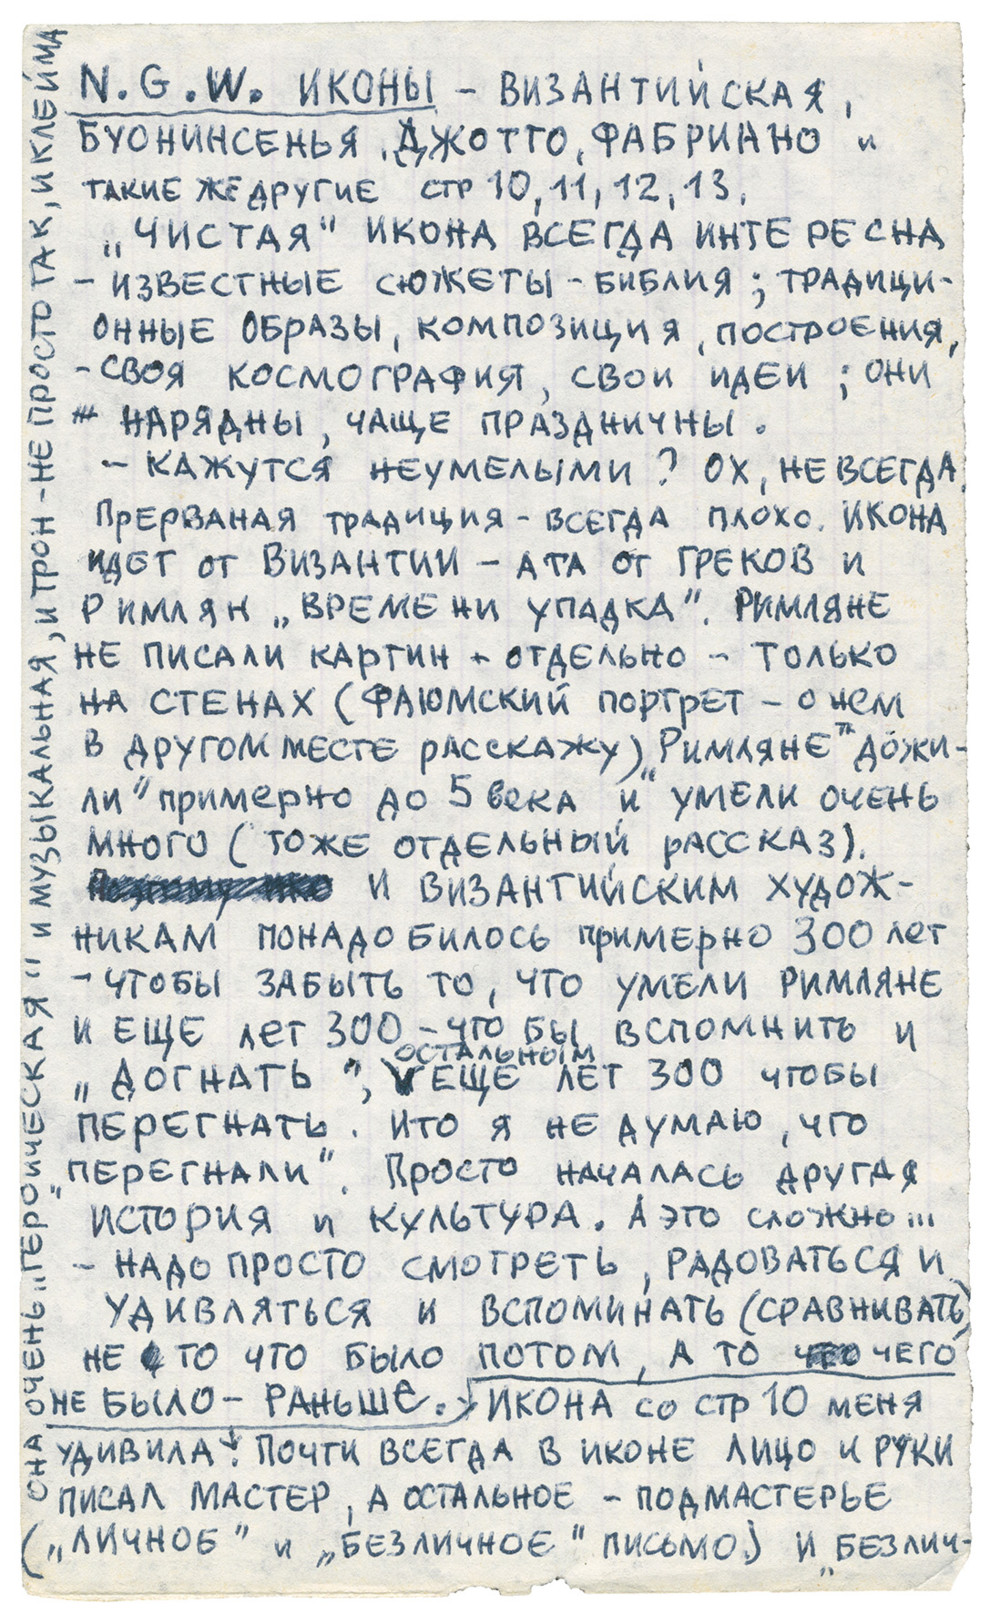 N.G.W. ИКОНЫ – ВИЗАНТИЙСКАЯ,
БУОНИНСЕНЬЯ, ДЖОТТО, ФАБРИАНО и
ТАКИЕ ЖЕ ДРУГИЕ стр 10, 11, 12, 13.
„ЧИСТАЯ" ИКОНА ВСЕГДА ИНТЕРЕСНА
– ИЗВЕСТНЫЕ СЮЖЕТЫ – БИБЛИЯ; ТРАДИЦИ-
ОННЫЕ ОБРАЗЫ, КОМПОЗИЦИЯ, ПОСТРОЕНИЯ,
– СВОЯ КОСМОГРАФИЯ, СВОИ ИДЕИ; ОНИ
НАРЯДНЫ, ЧАЩЕ ПРАЗДНИЧНЫ.
– КАЖУТСЯ НЕУМЕЛЫМИ? ОХ, НЕ ВСЕГДА.
ПРЕРВАНАЯ ТРАДИЦИЯ – ВСЕГДА ПЛОХО. ИКОНА
ИДЕТ ОТ ВИЗАНТИИ – А ТА ОТ ГРЕКОВ И
РИМЛЯН „ВРЕМЕНИ УПАДКА". РИМЛЯНЕ
НЕ ПИСАЛИ КАРТИН – ОТДЕЛЬНО – ТОЛЬКО
НА СТЕНАХ (ФАЮМСКИЙ ПОРТРЕТ – О ЧЕМ
В ДРУГОМ МЕСТЕ РАССКАЖУ) РИМЛЯНЕ „ДОЖИ-
ЛИ" примерно до 5 века и УМЕЛИ ОЧЕНЬ
МНОГО (ТОЖЕ ОТДЕЛЬНЫЙ РАССКАЗ).
И ВИЗАНТИЙСКИМ ХУДОЖ-
НИКАМ ПОНАДОБИЛОСЬ ПРИМЕРНО 300 лет
– ЧТОБЫ ЗАБЫТЬ ТО, ЧТО УМЕЛИ РИМЛЯНЕ
И ЕЩЕ лет 300 – ЧТО БЫ ВСПОМНИТЬ И
„ДОГНАТЬ", ЕЩЕ ОСТАЛЬНЫМ ЛЕТ 300 ЧТОБЫ
ПЕРЕГНАТЬ. ИТО Я НЕ ДУМАЮ, ЧТО
„ПЕРЕГНАЛИ". ПРОСТО НАЧАЛАСЬ ДРУГАЯ
ИСТОРИЯ И КУЛЬТУРА. А ЭТО СЛОЖНО...
– НАДО ПРОСТО СМОТРЕТЬ, РАДОВАТЬСЯ И
УДИВЛЯТЬСЯ И ВСПОМИНАТЬ (СРАВНИВАТЬ)
НЕ ТО ЧТО БЫЛО ПОТОМ, А ТО ЧЕГО
НЕ БЫЛО – РАНЬШЕ. ИКОНА со стр 10 МЕНЯ
УДИВИЛА: ПОЧТИ ВСЕГДА В ИКОНЕ ЛИЦО И РУКИ
ПИСАЛ МАСТЕР, А ОСТАЛЬНОЕ – ПОДМАСТЕРЬЕ
(„ЛИЧНОЕ" и „БЕЗЛИЧНОЕ" ПИСЬМО.) И „БЕЗЛИЧ-
ОНА ОЧЕНЬ „ГЕРОИЧЕСКАЯ" И МУЗЫКАЛЬНАЯ, И ТРОН – НЕ ПРОСТО ТАК, И КЛЕЙМА